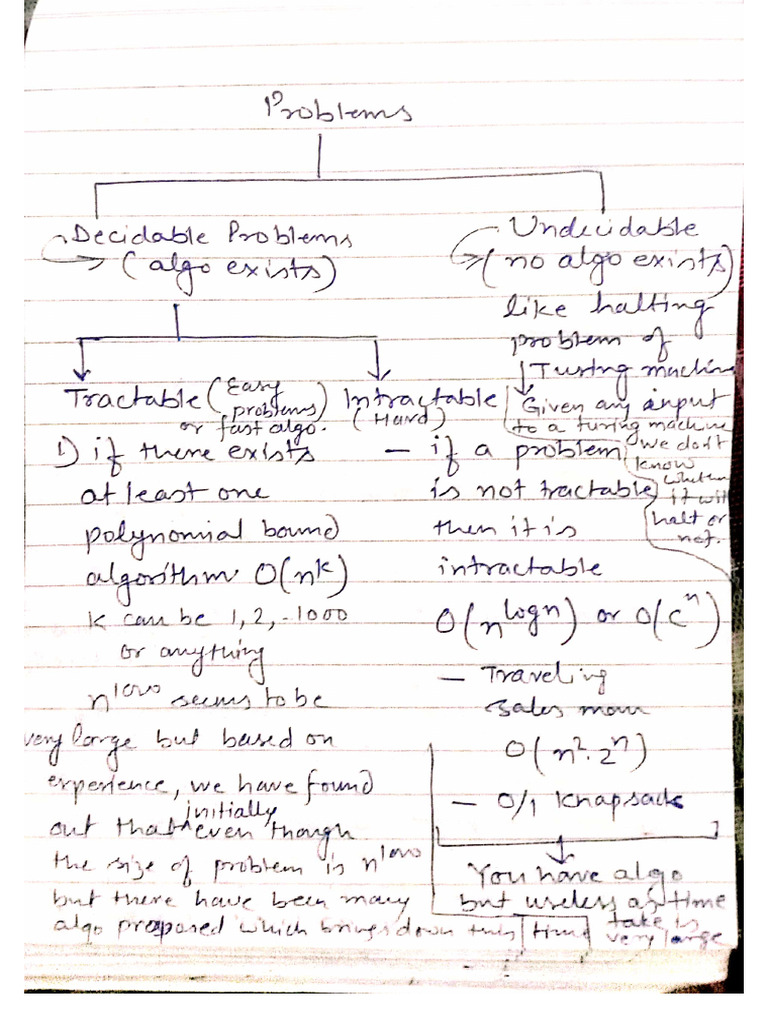 Problems
Decidable Problems
(algo exists)
Undecidable
(no algo exists)
like halting
problem of
Turing machine
Given any input
to a turing machine
we don't
know
whether
it will
halt or
not.
Tractable (Easy
problems)
or fast algo.
1) if there exists
at least one
polynomial bound
algorithm. O(n^k)
k can be 1, 2, -1000
or anything
n^1000 seems to be
very large but based on
experience, we have found
out that initially even though
the size of problem is n^1000
but there have been many
algo proposed which brings down this time
Intractable
(Hard)
- if a problem
is not tractable
then it is
intractable
O(n^log n) or O(c^n)
- Traveling
Sales man
O(n^2. 2^n)
- 0/1 Knapsack
You have algo
but useless as time
take is
very large